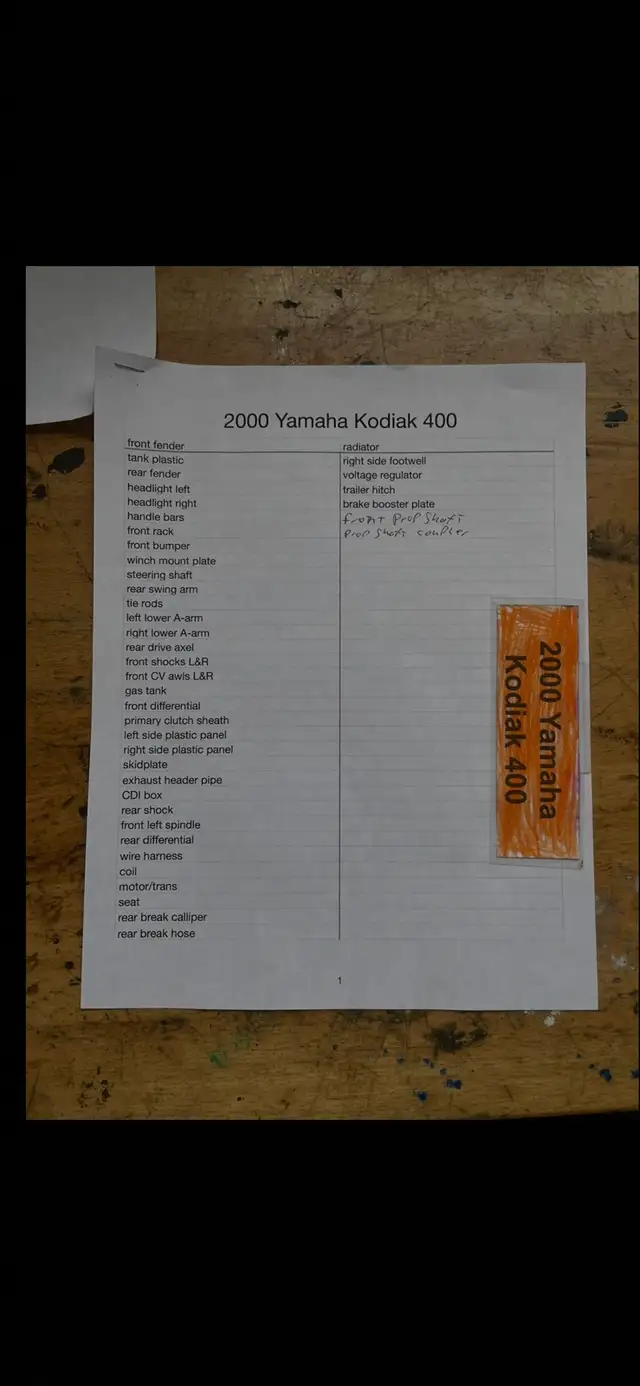 2000 Yamaha Kodiak 400
front fender
tank plastic
rear fender
headlight left
headlight right
handle bars
front rack
front bumper
winch mount plate
steering shaft
rear swing arm
tie rods
left lower A-arm
right lower A-arm
rear drive axel
front shocks L&R
front CV awls L&R
gas tank
front differential
primary clutch sheath
left side plastic panel
right side plastic panel
skidplate
exhaust header pipe
CDI box
rear shock
front left spindle
rear differential
wire harness
coil
motor/trans
seat
rear break calliper
rear break hose
radiator
right side footwell
voltage regulator
trailer hitch
brake booster plate
front prop shaft
prop shaft coupler
2000 Yamaha
Kodiak 400
1